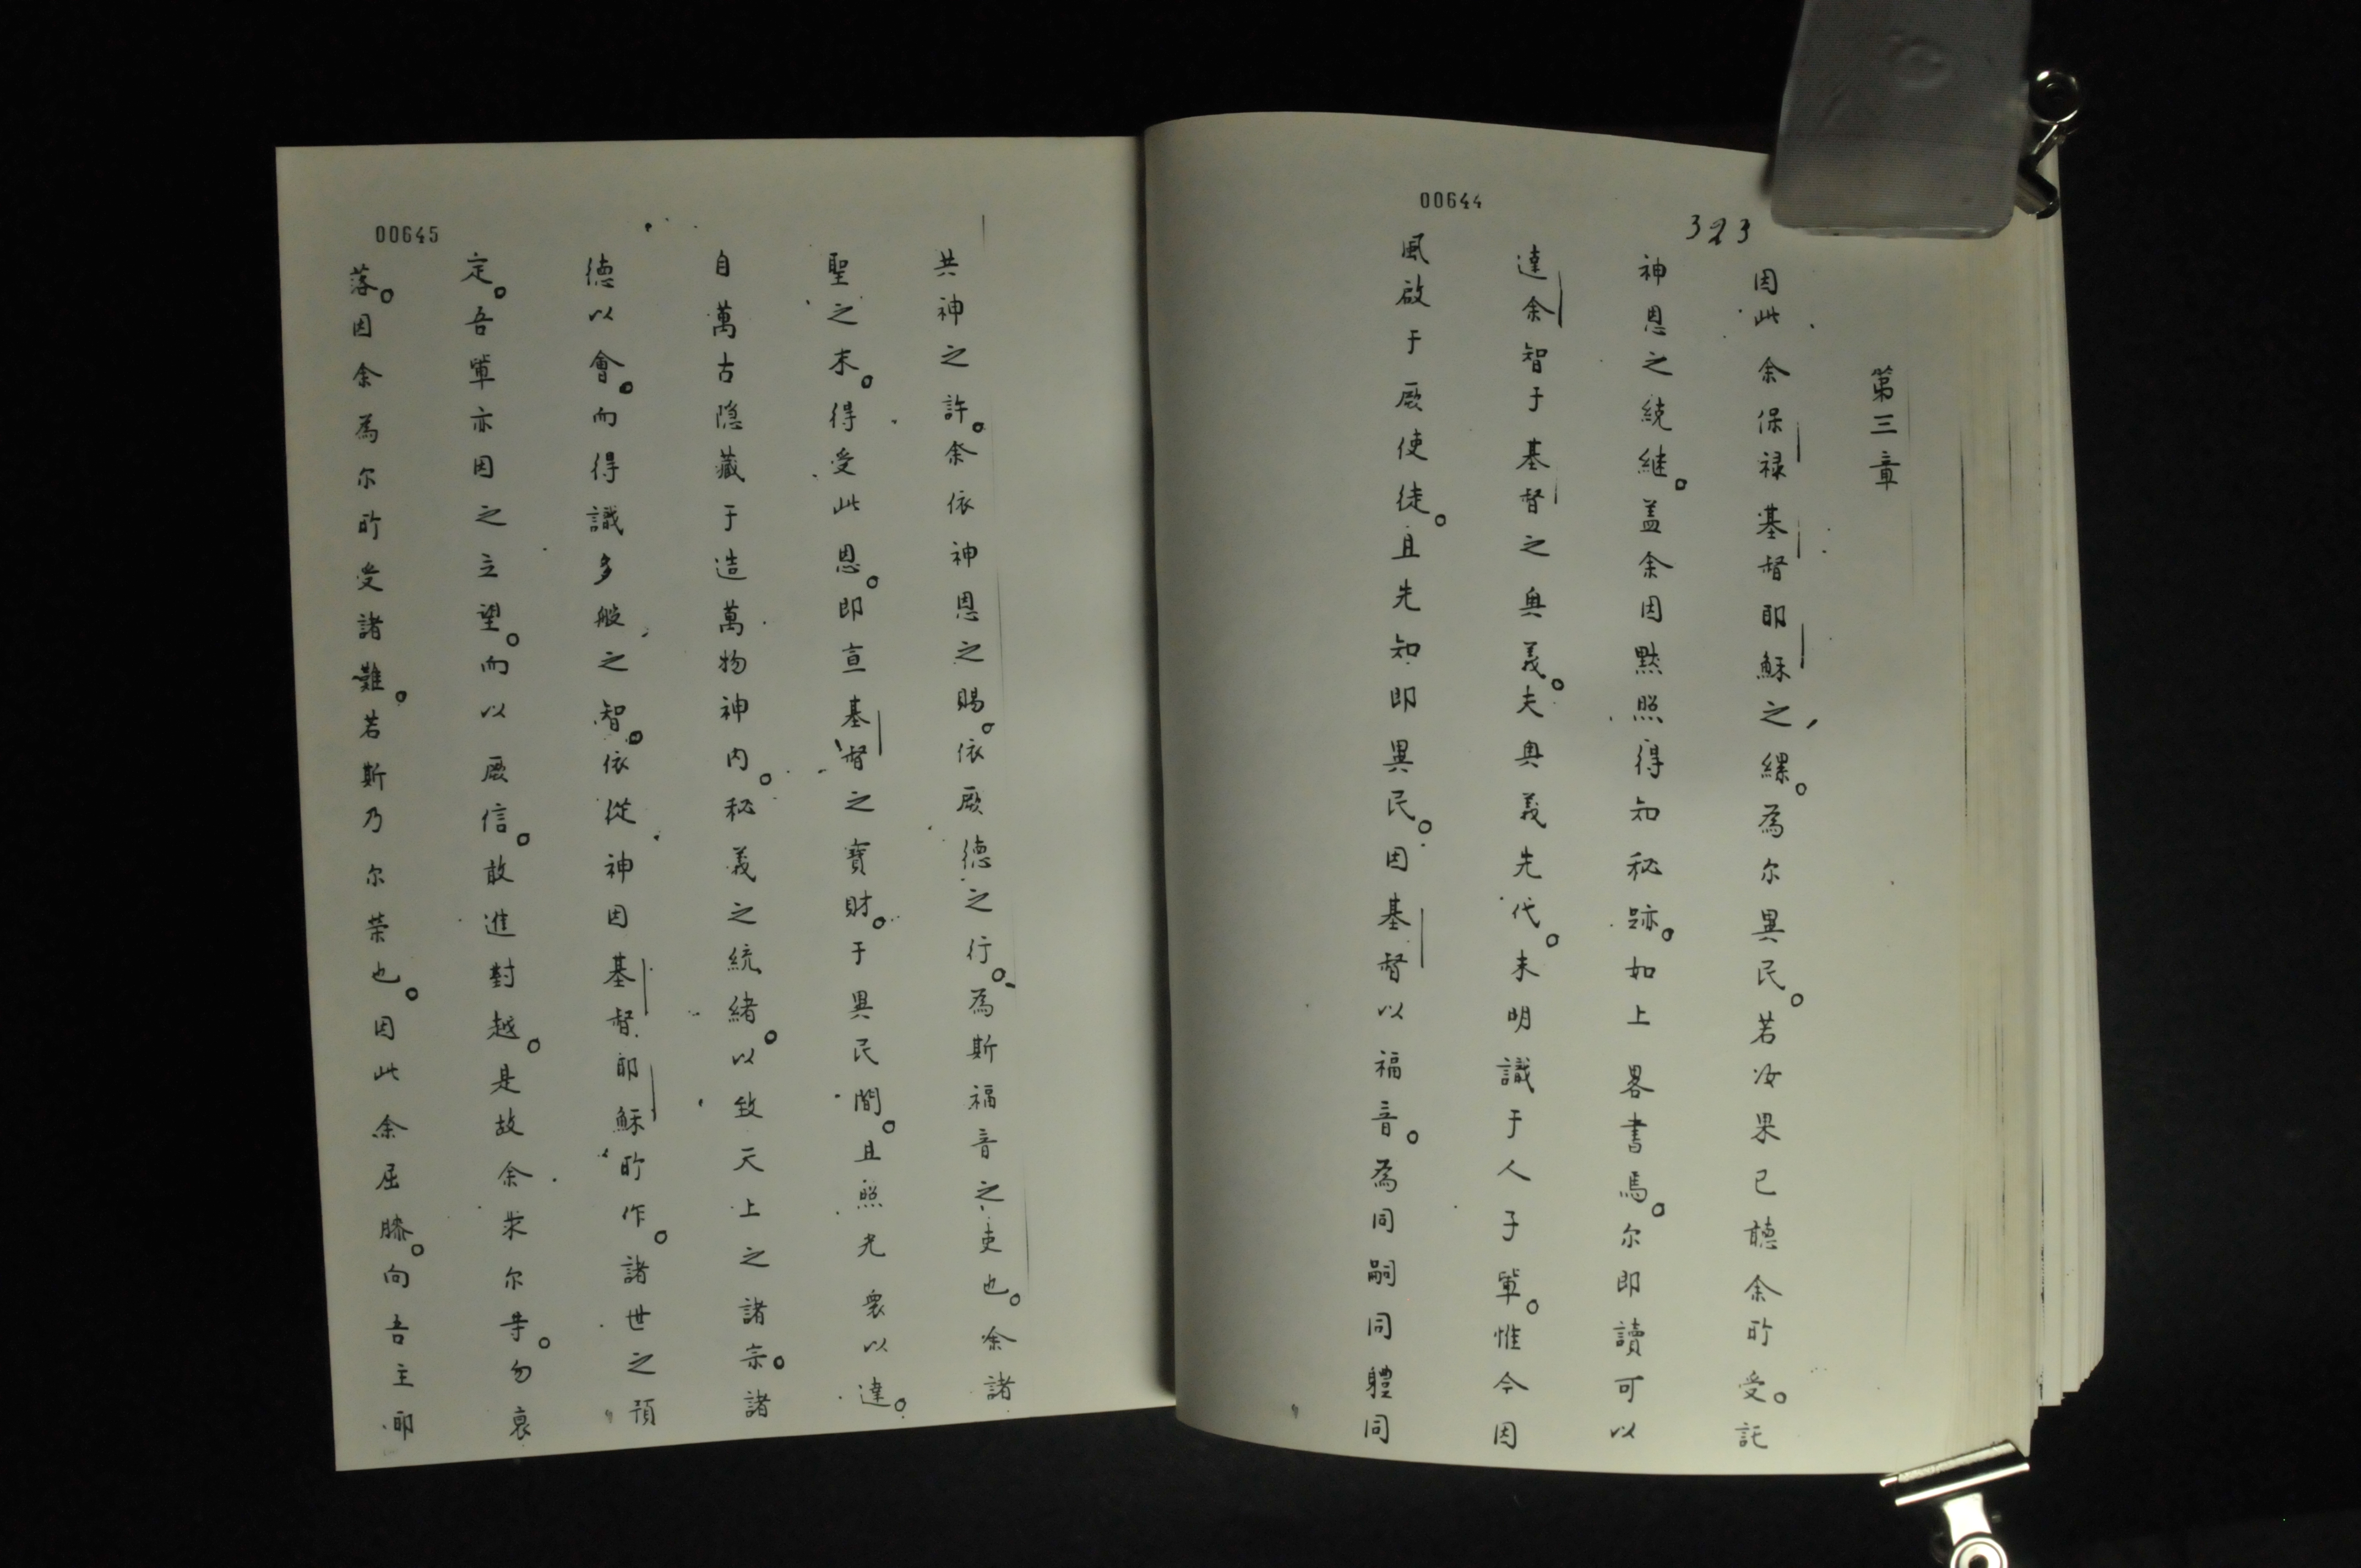 00644
323
第三章
因此余保禄基督耶穌之縲。為尔異民。若汝果已聽余所受。託
神恩之統继。盖余因黙照得知秘跡。如上畧書焉。尔即讀可以
達余智于基督之奥義。夫奥義先代。未明識于人子軰。惟今因
風啟于厥使徒。且先知即異民。因基督以福音。為同嗣同軆同
00645
共神之許。余依神恩之賜。依厥徳之行。為斯福音之吏也。余諸
聖之末。得受此恩。即宣基督之寶財。于異民間。且照光衆以達。
自萬古隐藏于造萬物神内。秘義之統緒。以致天上之諸宗。諸
徳以會。而得識多般之智。依從神因基督耶穌所作。諸世之預
定。吾軰亦因之立望。而以厥信。敢進對越。是故余求尔等。勿衰
落。因余為尔所受諸難。若斯乃尔荣也。因此余屈膝。向吾主耶